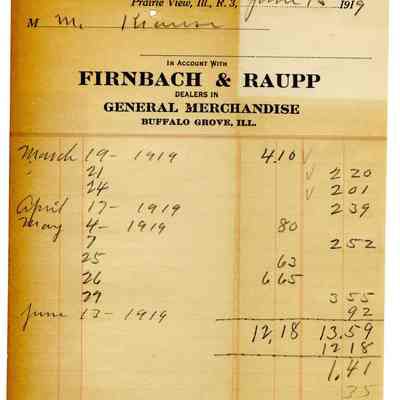 Prairie View, Ill., R. 3, June 13 1919
M M. Krause
IN ACCOUNT WITH
FIRNBACH & RAUPP
DEALERS IN
GENERAL MERCHANDISE
BUFFALO GROVE, ILL.
March 19 - 1919 4.10 ✓
" 21 ✓ 2 20
24 ✓ 2 01
April 17 - 1919 2 39
May 4 - 1919 80
7 2 52
25 63
26 6 65
29 3 55
June 13 - 1919 92
12,18 13.59
12 18
1,41
35